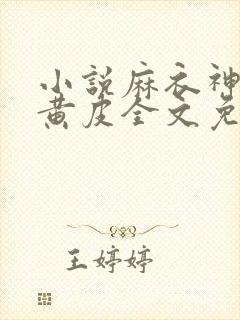 小说麻衣神
黄皮全文免
王婷婷